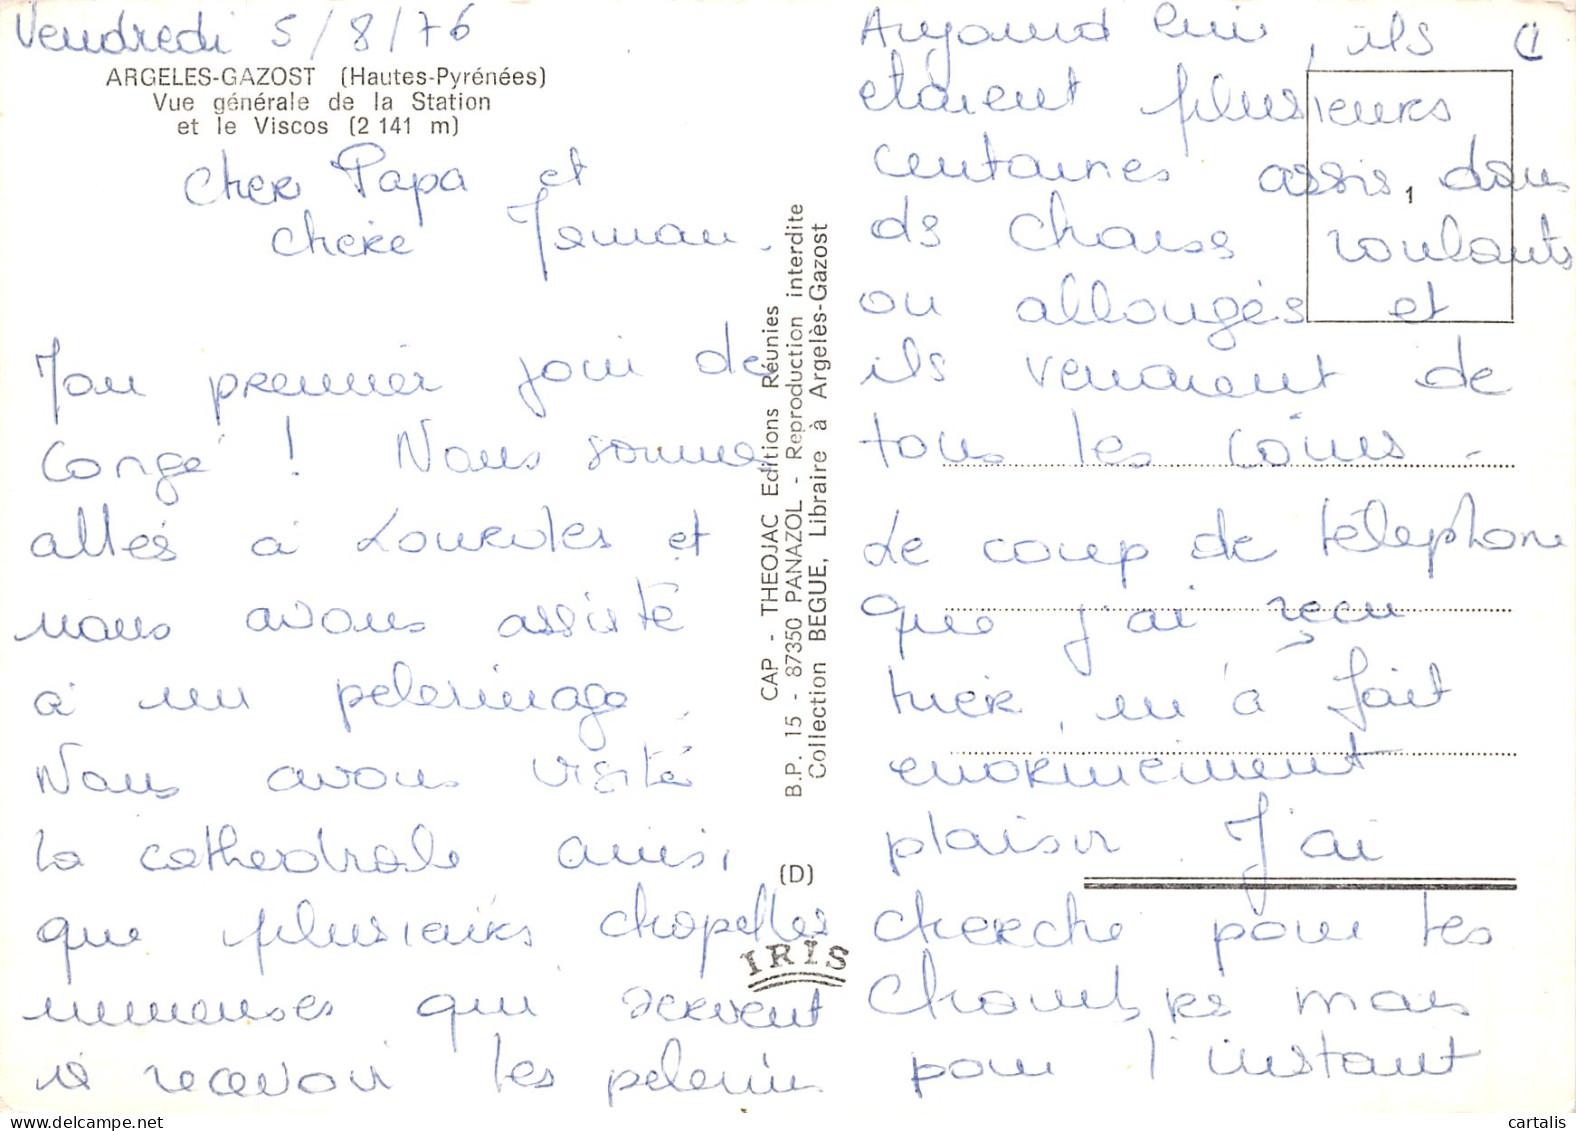 Vendredi 5/8/76
ARGELES-GAZOST (Hautes-Pyrénées)
Vue générale de la Station
et le Viscos (2 141 m)
Cher Papa et
chère Maman.
Mon premier jour de
congé ! Nous somme
allés à Lourdes et
nous avons assisté
à un pelerinage.
Nous avons visité
la cathedrale ainsi,
que plusieurs chapelles
immenses qui servent
à recevoir les pelerins
CAP - THEOJAC Editions Réunies
B.P. 15 - 87350 PANAZOL - Reproduction interdite
Collection BEGUE, Libraire à Argelès-Gazost
(D)
IRIS
Aujourd'hui, ils
etaient plusieurs
centaines assis dans
ds chaises roulants
ou allongés et
ils venaient de
tous les coins.
Le coup de télephone
que j'ai reçu
hier, m'a fait
enormément
plaisir. J'ai
cherché pour les
chambres mais
pour l'instant
1
1
cartalis
delcampe.net